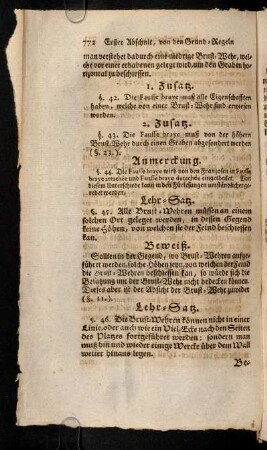 772 Erster Abschnit, von den Grund-Regeln
man verstehet dadurch eine niedrige Brust-Wehr, wel-
che vor einer erhabenen gelegt wird, um den Graben ho-
rizontal zu beschiessen.
1. Zusatz.
§. 42. Die Fausse braye muß alle Eigenschafften
haben, welche von einer Brust-Wehr sind erwiesen
worden.
2. Zusatz.
§. 43. Die Fausse braye muß von der höhern
Brust-Wehr durch einen Graben abgesondert werden
(§. 23.).
Anmerckung.
§. 44. Die Fausse braye wird von den Frantzosen in Fausse
braye attachée und Fausse braye detachée eingetheilet. Von
diesem Unterschiede kann in den Vorlesungen umständlicher ge-
redet werden.
Lehr-Satz.
§. 45. Alle Brust-Wehren müssen an einem
solchen Ort geleget werden, in dessen Gegend
keine Höhen, von welchen sie der Feind beschiessen
kan.
Beweiß.
Sollten in der Gegend, wo Brust-Wehren aufge-
führet werden, solche Höhen seyn, von welchen der Feind
die Brust-Wehren beschiessen kan, so würde sich die
Besatzung mit der Brust-Wehr nicht bedecken können.
Dieses aber ist der Absicht der Brust-Wehr zuwider
(§. 11.).
Lehr-Satz.
§. 46. Die Brust-Wehren können nicht in einer
Linie, oder auch wie ein Viel-Ecke nach den Seiten
des Platzes fortgeführet werden: sondern man
muß hin und wieder einige Wercke über dem Wall
weiter hinaus legen.
Be-